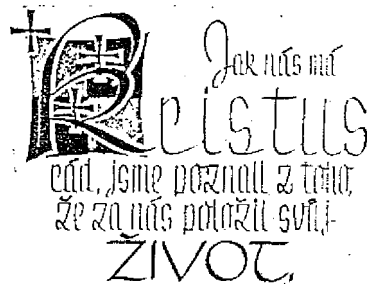 Jak nás má
Kristus
rád, jsme poznali z toho,
že za nás položil svůj
ŽIVOT.